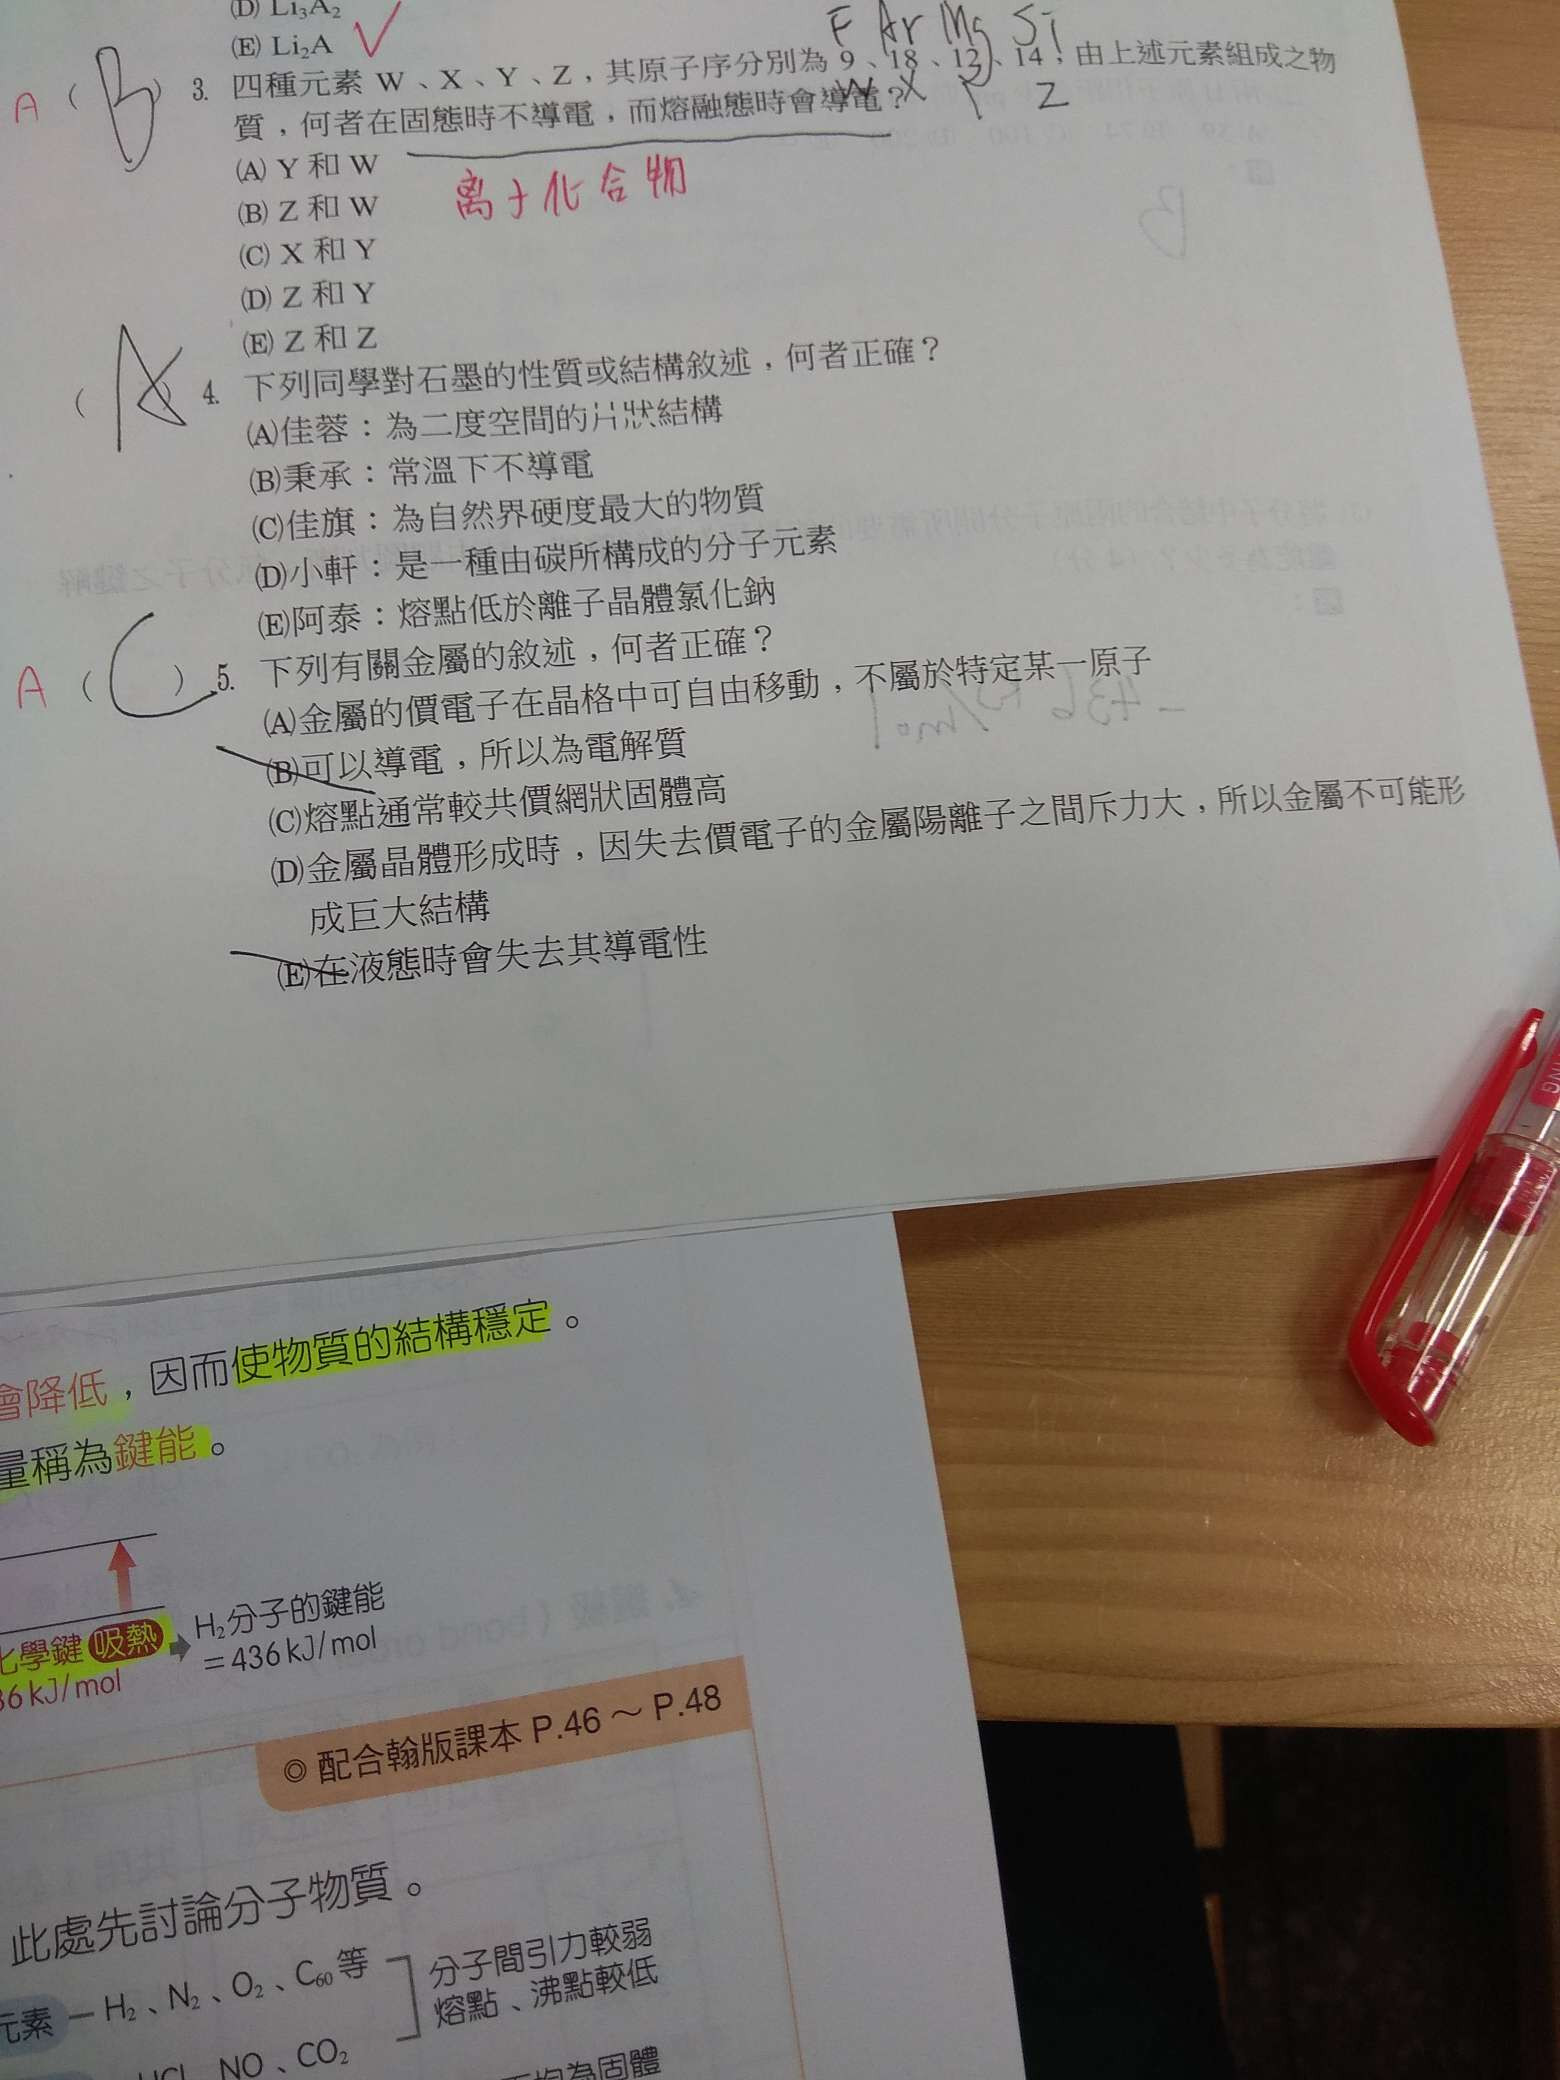 (D) Li₃A₂
(E) Li₂A
F Ar Mg Si
A ( B ) 3. 四種元素 W、X、Y、Z，其原子序分別為 9、18、12、14；由上述元素組成之物
W X Y Z
質，何者在固態時不導電，而熔融態時會導電？
(A) Y 和 W
离子化合物
(B) Z 和 W
(C) X 和 Y
(D) Z 和 Y
(E) Z 和 Z
( A ) 4. 下列同學對石墨的性質或結構敘述，何者正確？
(A)佳蓉：為二度空間的片狀結構
(B)秉承：常溫下不導電
(C)佳旗：為自然界硬度最大的物質
(D)小軒：是一種由碳所構成的分子元素
(E)阿泰：熔點低於離子晶體氯化鈉
A ( C ) 5. 下列有關金屬的敘述，何者正確？
(A)金屬的價電子在晶格中可自由移動，不屬於特定某一原子
(B)可以導電，所以為電解質
(C)熔點通常較共價網狀固體高
(D)金屬晶體形成時，因失去價電子的金屬陽離子之間斥力大，所以金屬不可能形
成巨大結構
(E)在液態時會失去其導電性
會降低，因而使物質的結構穩定。
量稱為鍵能。
化學鍵 吸熱
36 kJ/mol
H₂分子的鍵能
＝436 kJ/mol
◎ 配合翰版課本 P.46 ～ P.48
此處先討論分子物質。
元素 － H₂、N₂、O₂、C₆₀ 等
HCl、NO、CO₂
分子間引力較弱
熔點、沸點較低
均為固體